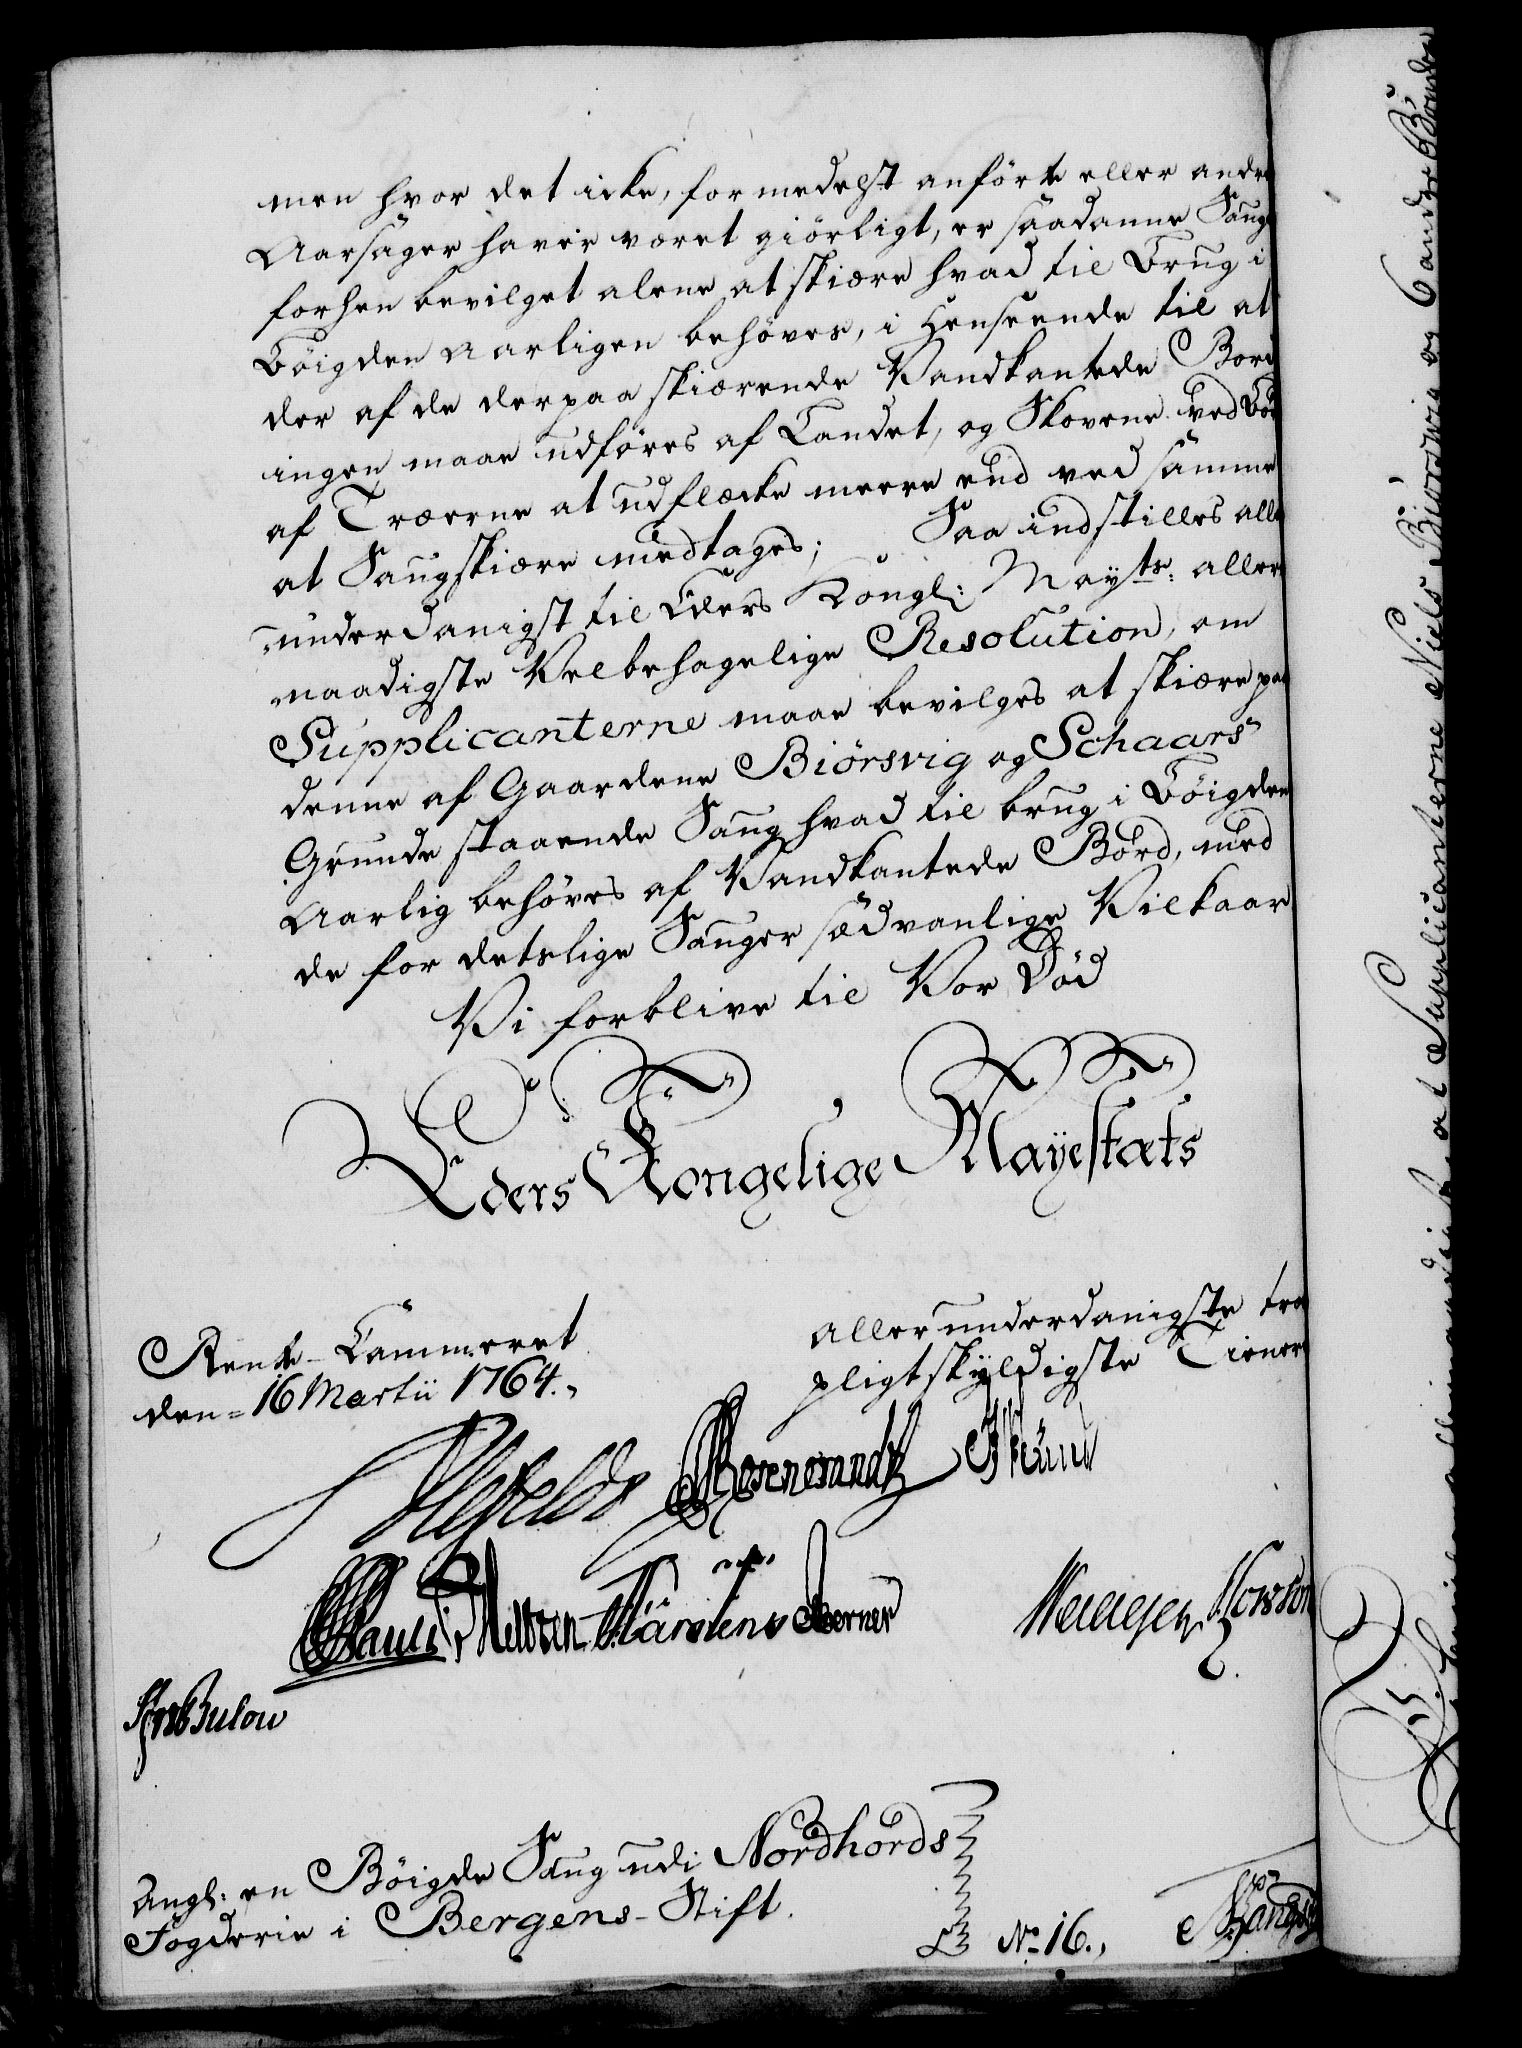 men hvor det icke, formedelst anförte eller andre
Aarsager haver været giörligt, er saadanne Saug
forhen bevilget alene at skiære hvad til Brug i
Böigden aarligen behöves, i Henseende til at
der af de derpaa skiærende Vandkantede Bord
ingen maae udföres af Landet, og Skovene ved
af Træerne at udflække meere end ved samme
at Saugskiære medtages; Saa indstilles aller
underdanigst til Eders Kongl: Mayts: aller
naadigste Velbehagelige Resolution, om
Supplicanterne maae bevilges at skiære paa
denne af Gaardene Biörsvig og Schaars
Grunde staaende Saug hvad til brug i Böigden
Aarlig behöves af Vandkantede Bord, med
de for deslige Sauger sædvanlige Vilkaar
Vi forblive til Vor Död
Eders Kongelige Mayestæts
Rente-Cammeret
den 16 Martii 1764.
allerunderdanigste troe
pligtskyldigste Tienere
Ahlefeldt
Pauli
Bulow
Angl: en Böigde Saug udi Nordhords
Fogderie i Bergens-Stift.
No 16.
at Supplicanterne Niels Biörsvig og 6 andre Bönder